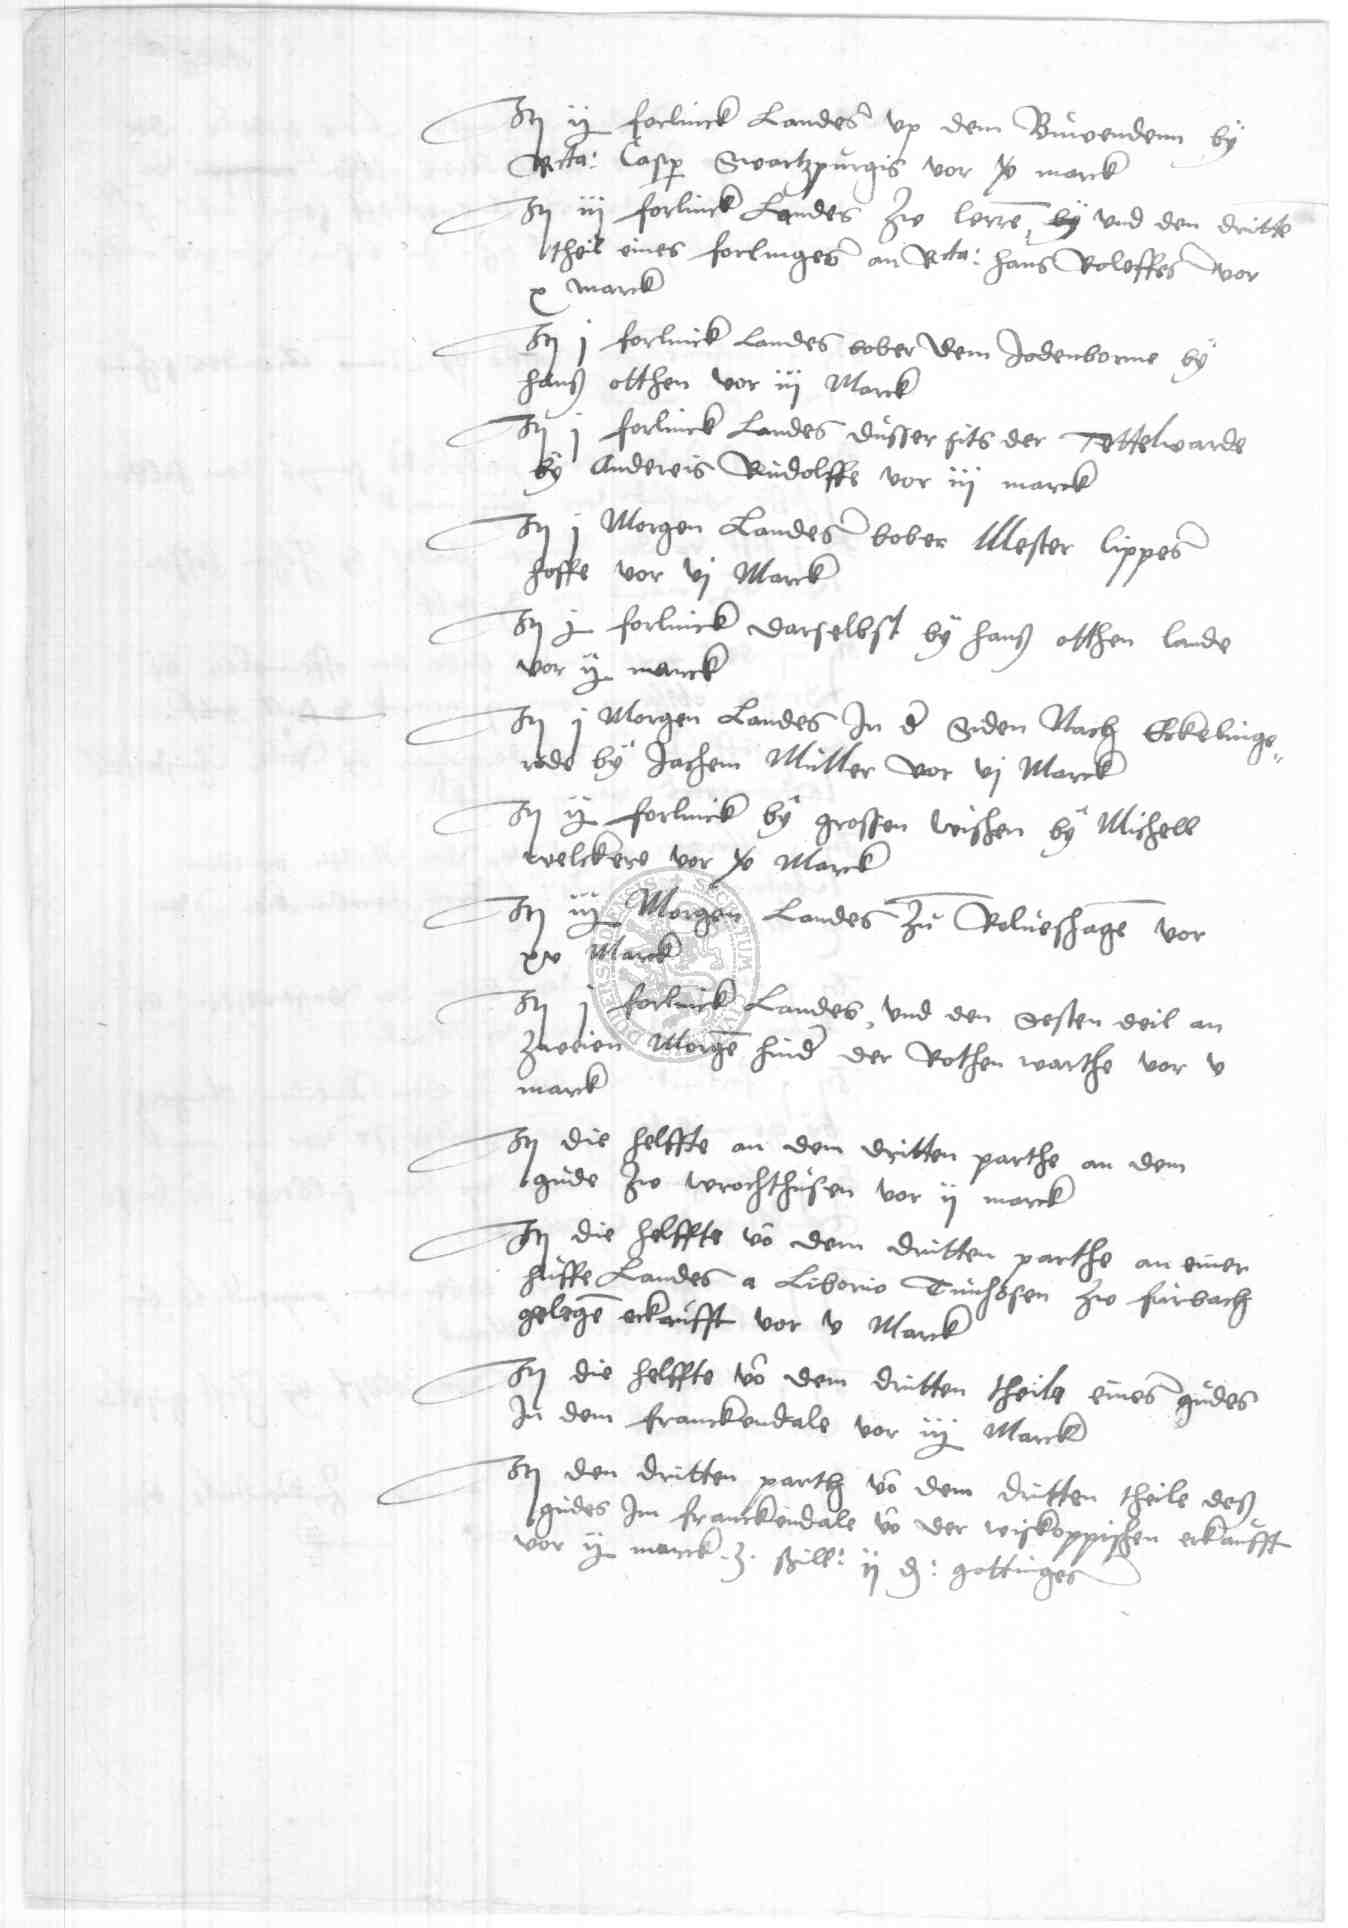 It ij forlinck Landes vp dem Buwendenn by
Rcta: Casp Swartzpurgis vor x marck
It iij forlinck Landes zw lerre, by vnd den dritte
theil eines forlinges an Rcta: hans Roleffes vor
x marck
It j forlinck Landes bober dem Jodenborne by
hanß otthen vor iij Marck
It j forlinck Landes dusser sits der Tettelwarde
by Andereis Rudolffe vor iij marck
It j Morgen Landes bober Mester lippes
hoffe vor vj Marck
It j forlinck darselbst by hanß otthen lande
vor ij marck
It j Morgen Landes In d Siden Nach Eckelinge„
rode by Jachem Muller vor vj Marck
It ij forlinck by grossen wishen by Michell
welckere vor x Marck
It iij Morgen Landes Zu Rolueshage vor
xv Marck
It j forlinck Landes, vnd den Sesten deil an
zweien Morge hind der Rothen warthe vor v
marck
It die helffte an dem dritten parthe an dem
gude zw wrochthusen vor ij marck
It die helffte vo dem dritten parthe an einer
huffe Landes a Liborio Tunhosen zw furbach
gelege erkaufft vor v Marck
It die helffte vo dem dritten theile eines gudes
In dem franckendale vor iij Marck
It den dritten parth vo dem dritten theile deß
gudes Im franckendale vo der wiskoppischen erkaufft
vor ij marck .3. schill: ij d: gottinges
SECRETUM